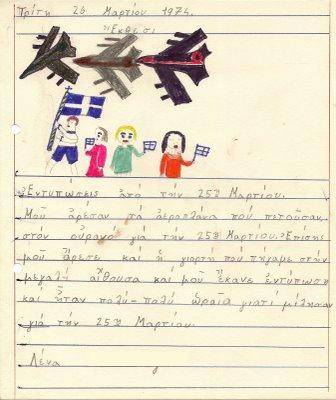 Τρίτη 26 Μαρτίου 1974.
Ἔκθεσι
Ἐντυπώσεις ἀπό τήν 25η Μαρτίου.
Μοῦ ἄρεσαν τά ἀεροπλάνα πού πετοῦσαν
στόν οὐρανό γιά τήν 25η Μαρτίου. Ἐπίσης
μοῦ ἄρεσε καί ἡ γιορτή πού πήγαμε στήν
μεγάλη αἴθουσα καί μοῦ ἔκανε ἐντύπωση
καί ἦταν πολύ-πολύ ὡραῖα γιατί μίλησαν
γιά τήν 25η Μαρτίου.
Λένα